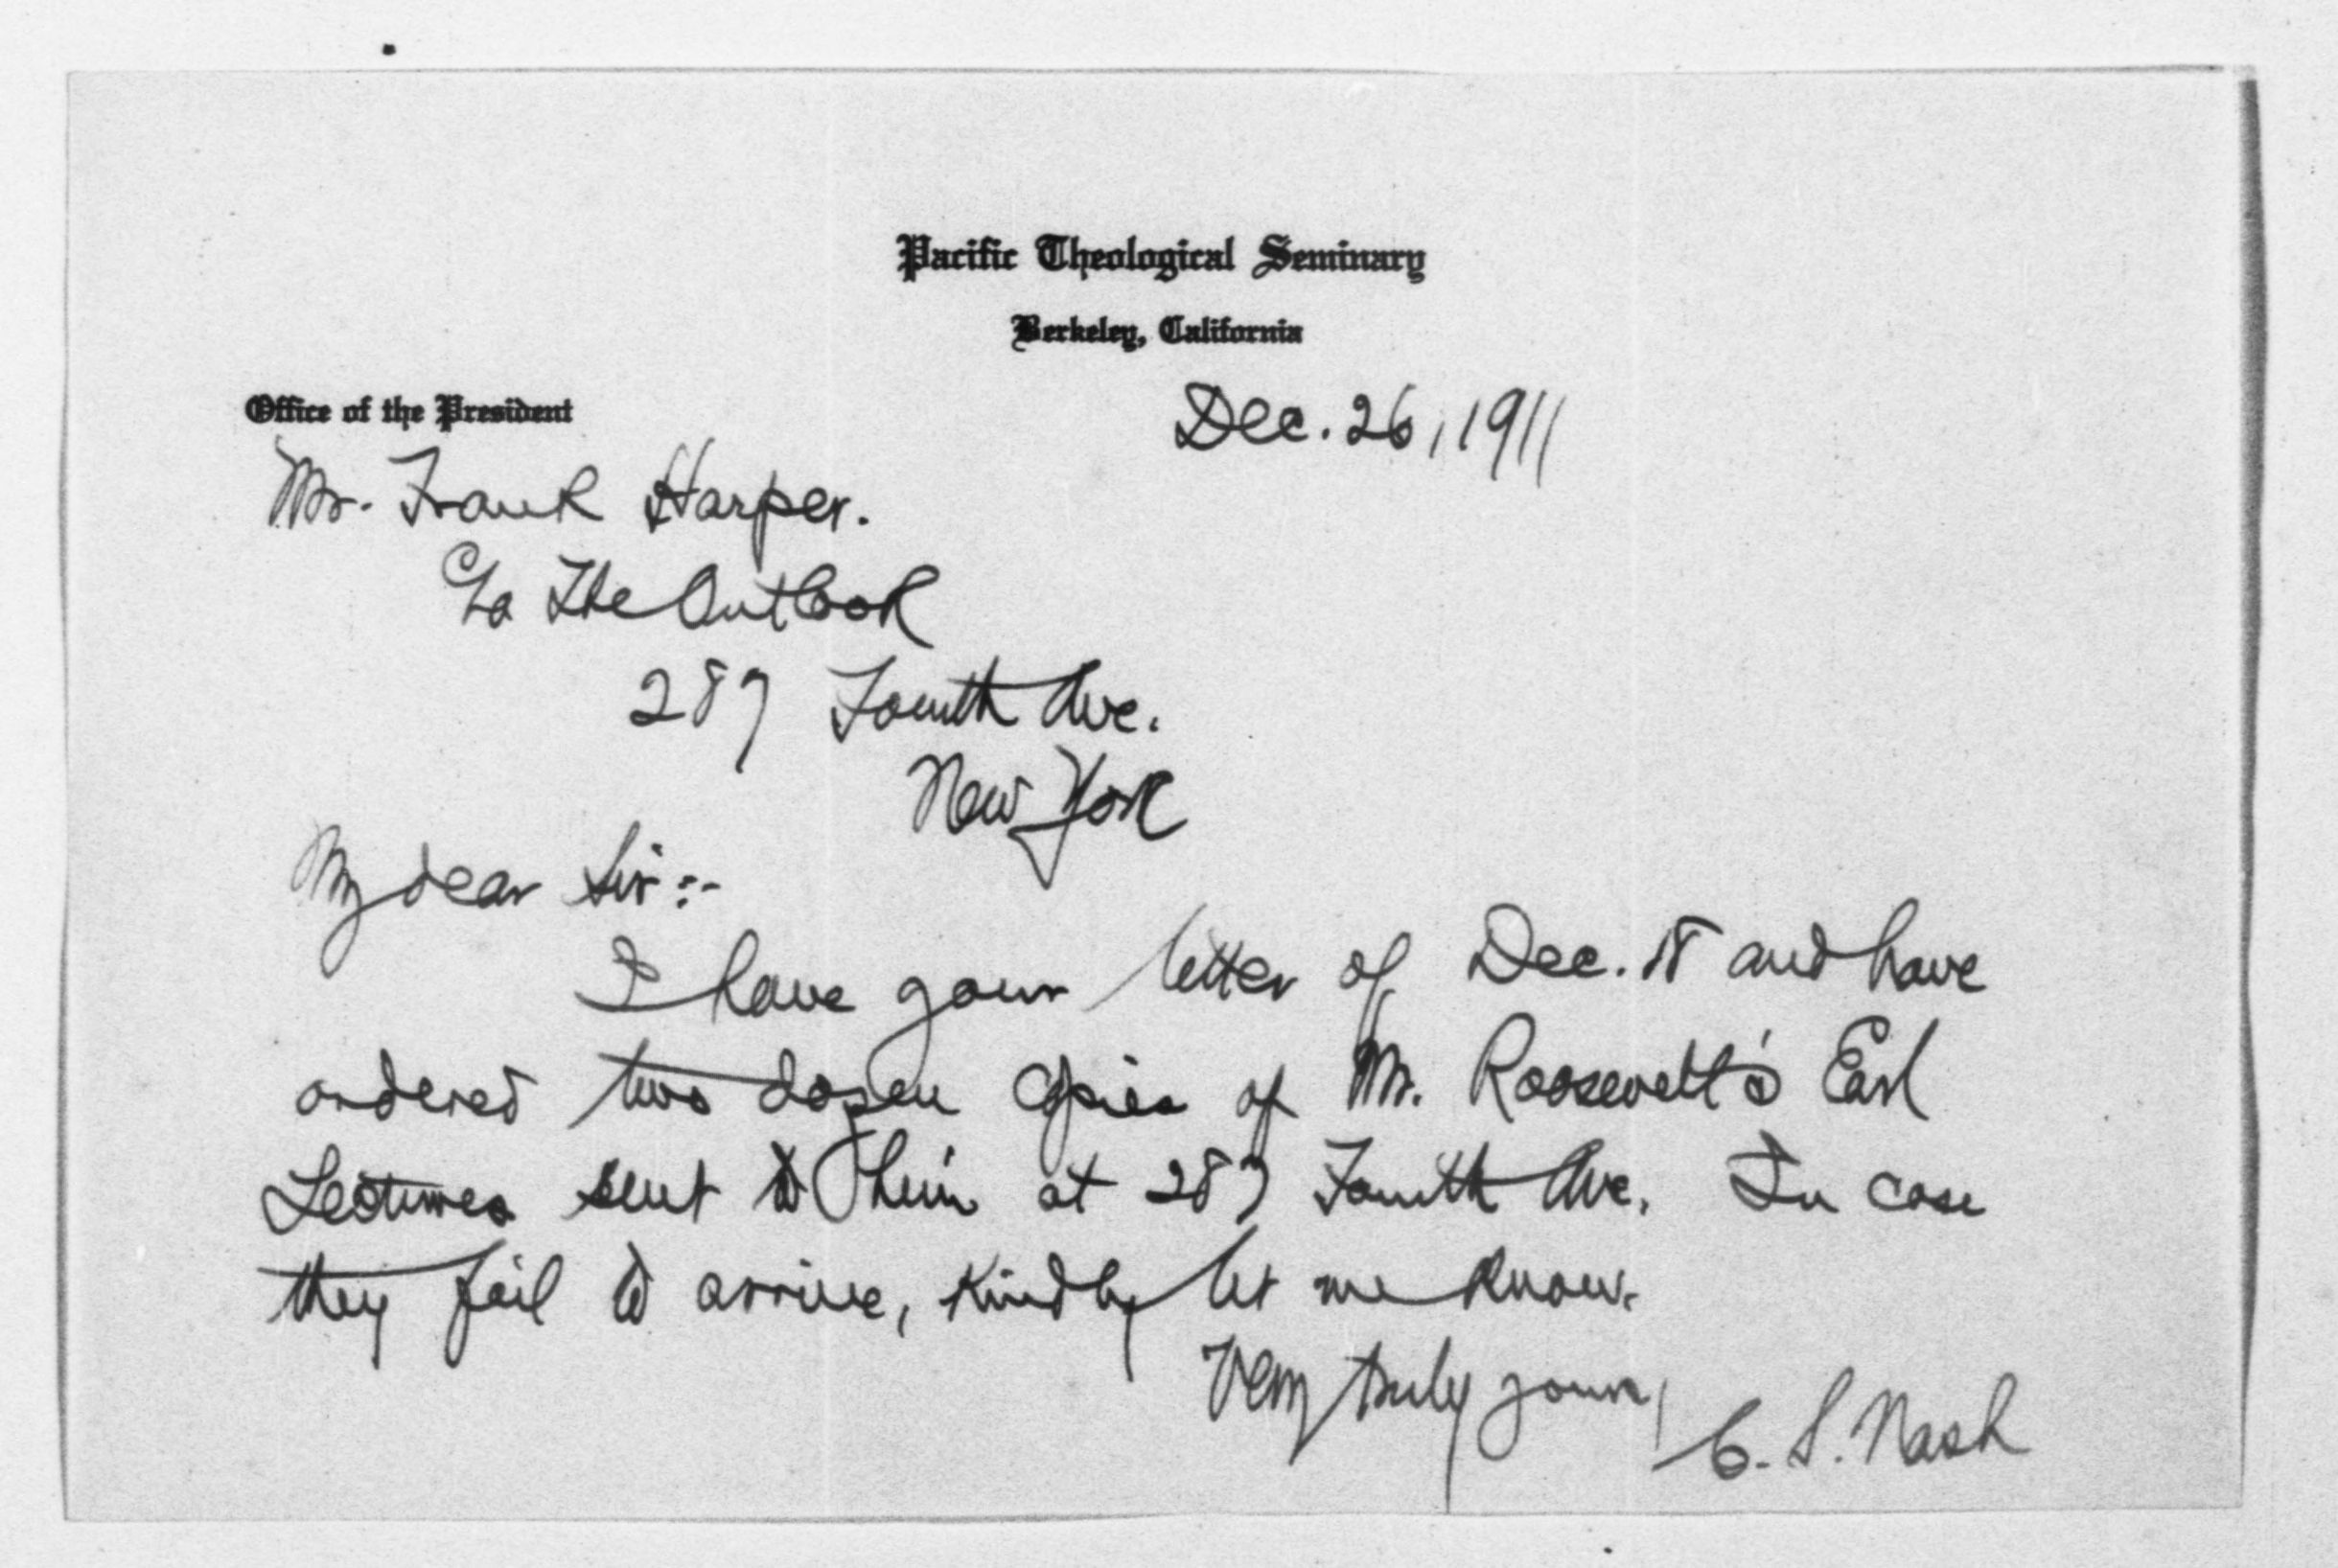 Pacific Theological Seminary
Berkeley, California
Office of the President
Dec. 26, 1911
Mr. Frank Harper.
c/o The Outlook
287 Fourth Ave.
New York
My dear Sir:-
I have your letter of Dec. 18 and have
ordered two dozen copies of Mr. Roosevelt's Earl
Lectures sent to him at 287 Fourth Ave. In case
they fail to arrive, kindly let me know.
Very truly yours,
C. S. Nash